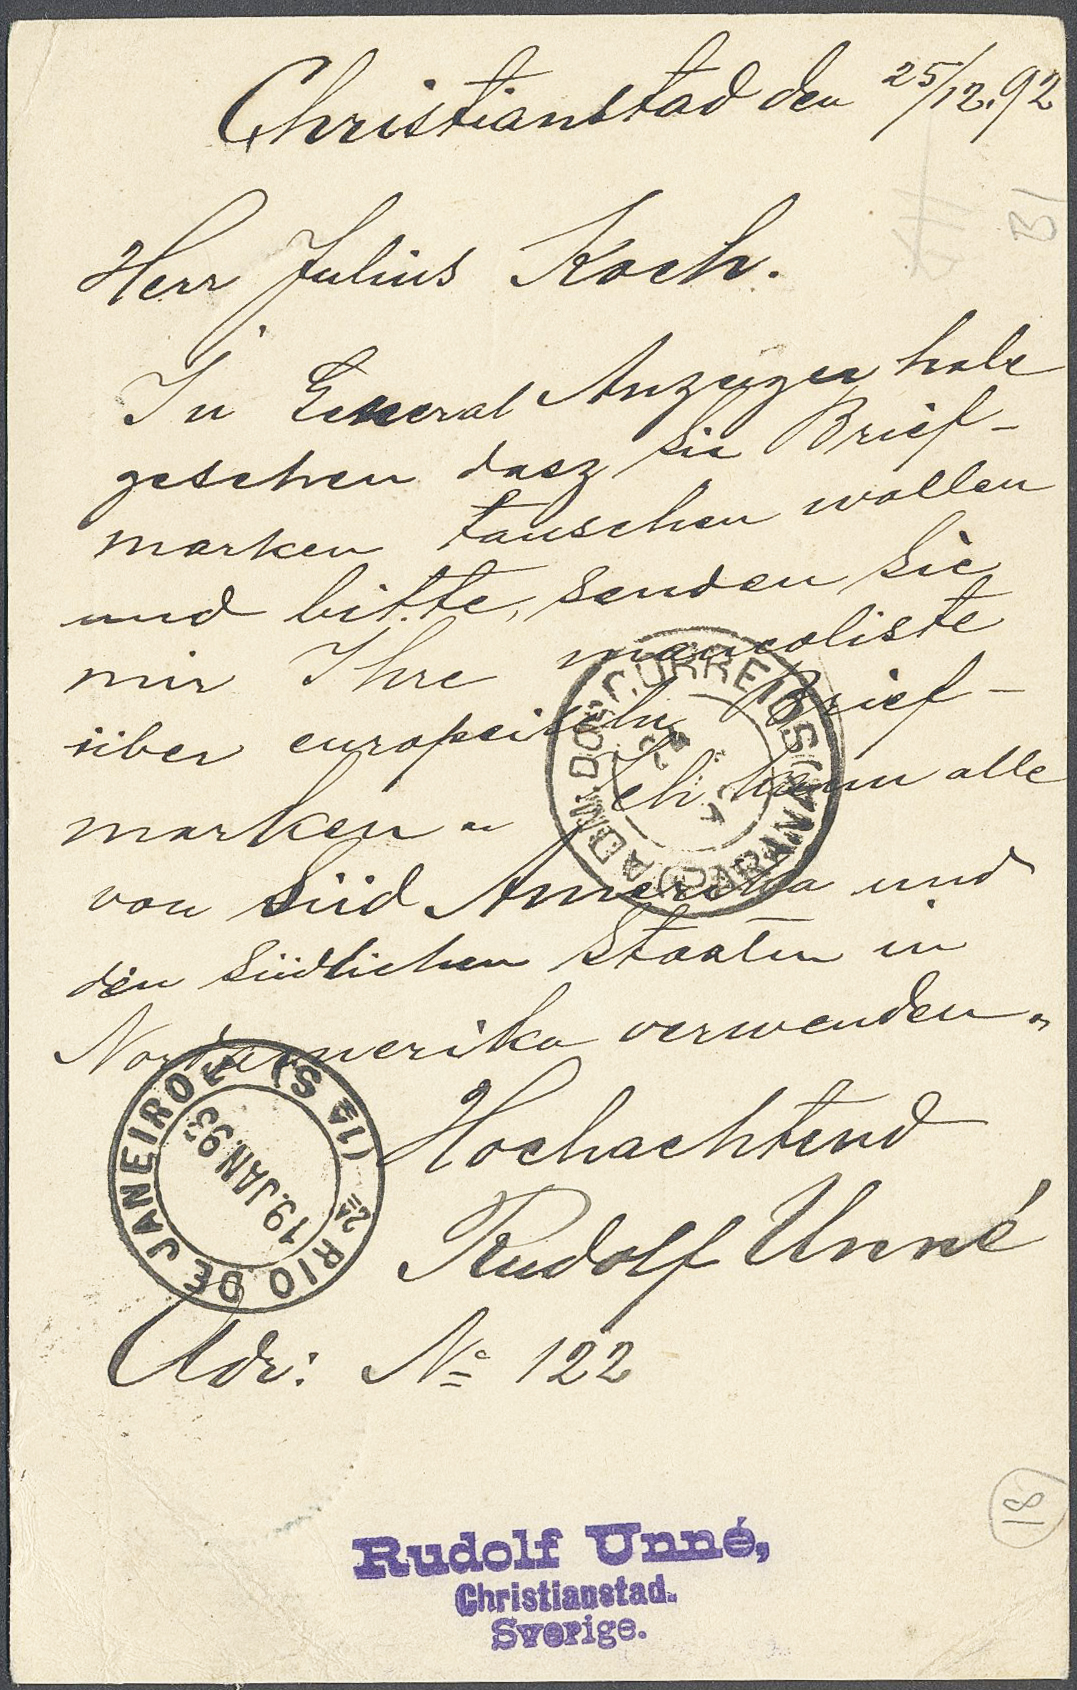 Christianstad den 25/12.92
Herr Julius Koch.
In General Anzeiger habe
gesehen dasz Sie Brief-
marken tauschen wollen
und bitte, senden Sie
mir Ihre mancoliste
über europeische Brief-
marken. Ich kann alle
von Süd Amerika und
den südlichen Staaten in
Nordamerika verwenden.
Hochachtend
Rudolf Unné
Adr: No 122
ADM. DOS CORREIOS (PARANÁ)
RIO DE JANEIRO
19.JAN.93
Rudolf Unné,
Christianstad.
Sverige.
18